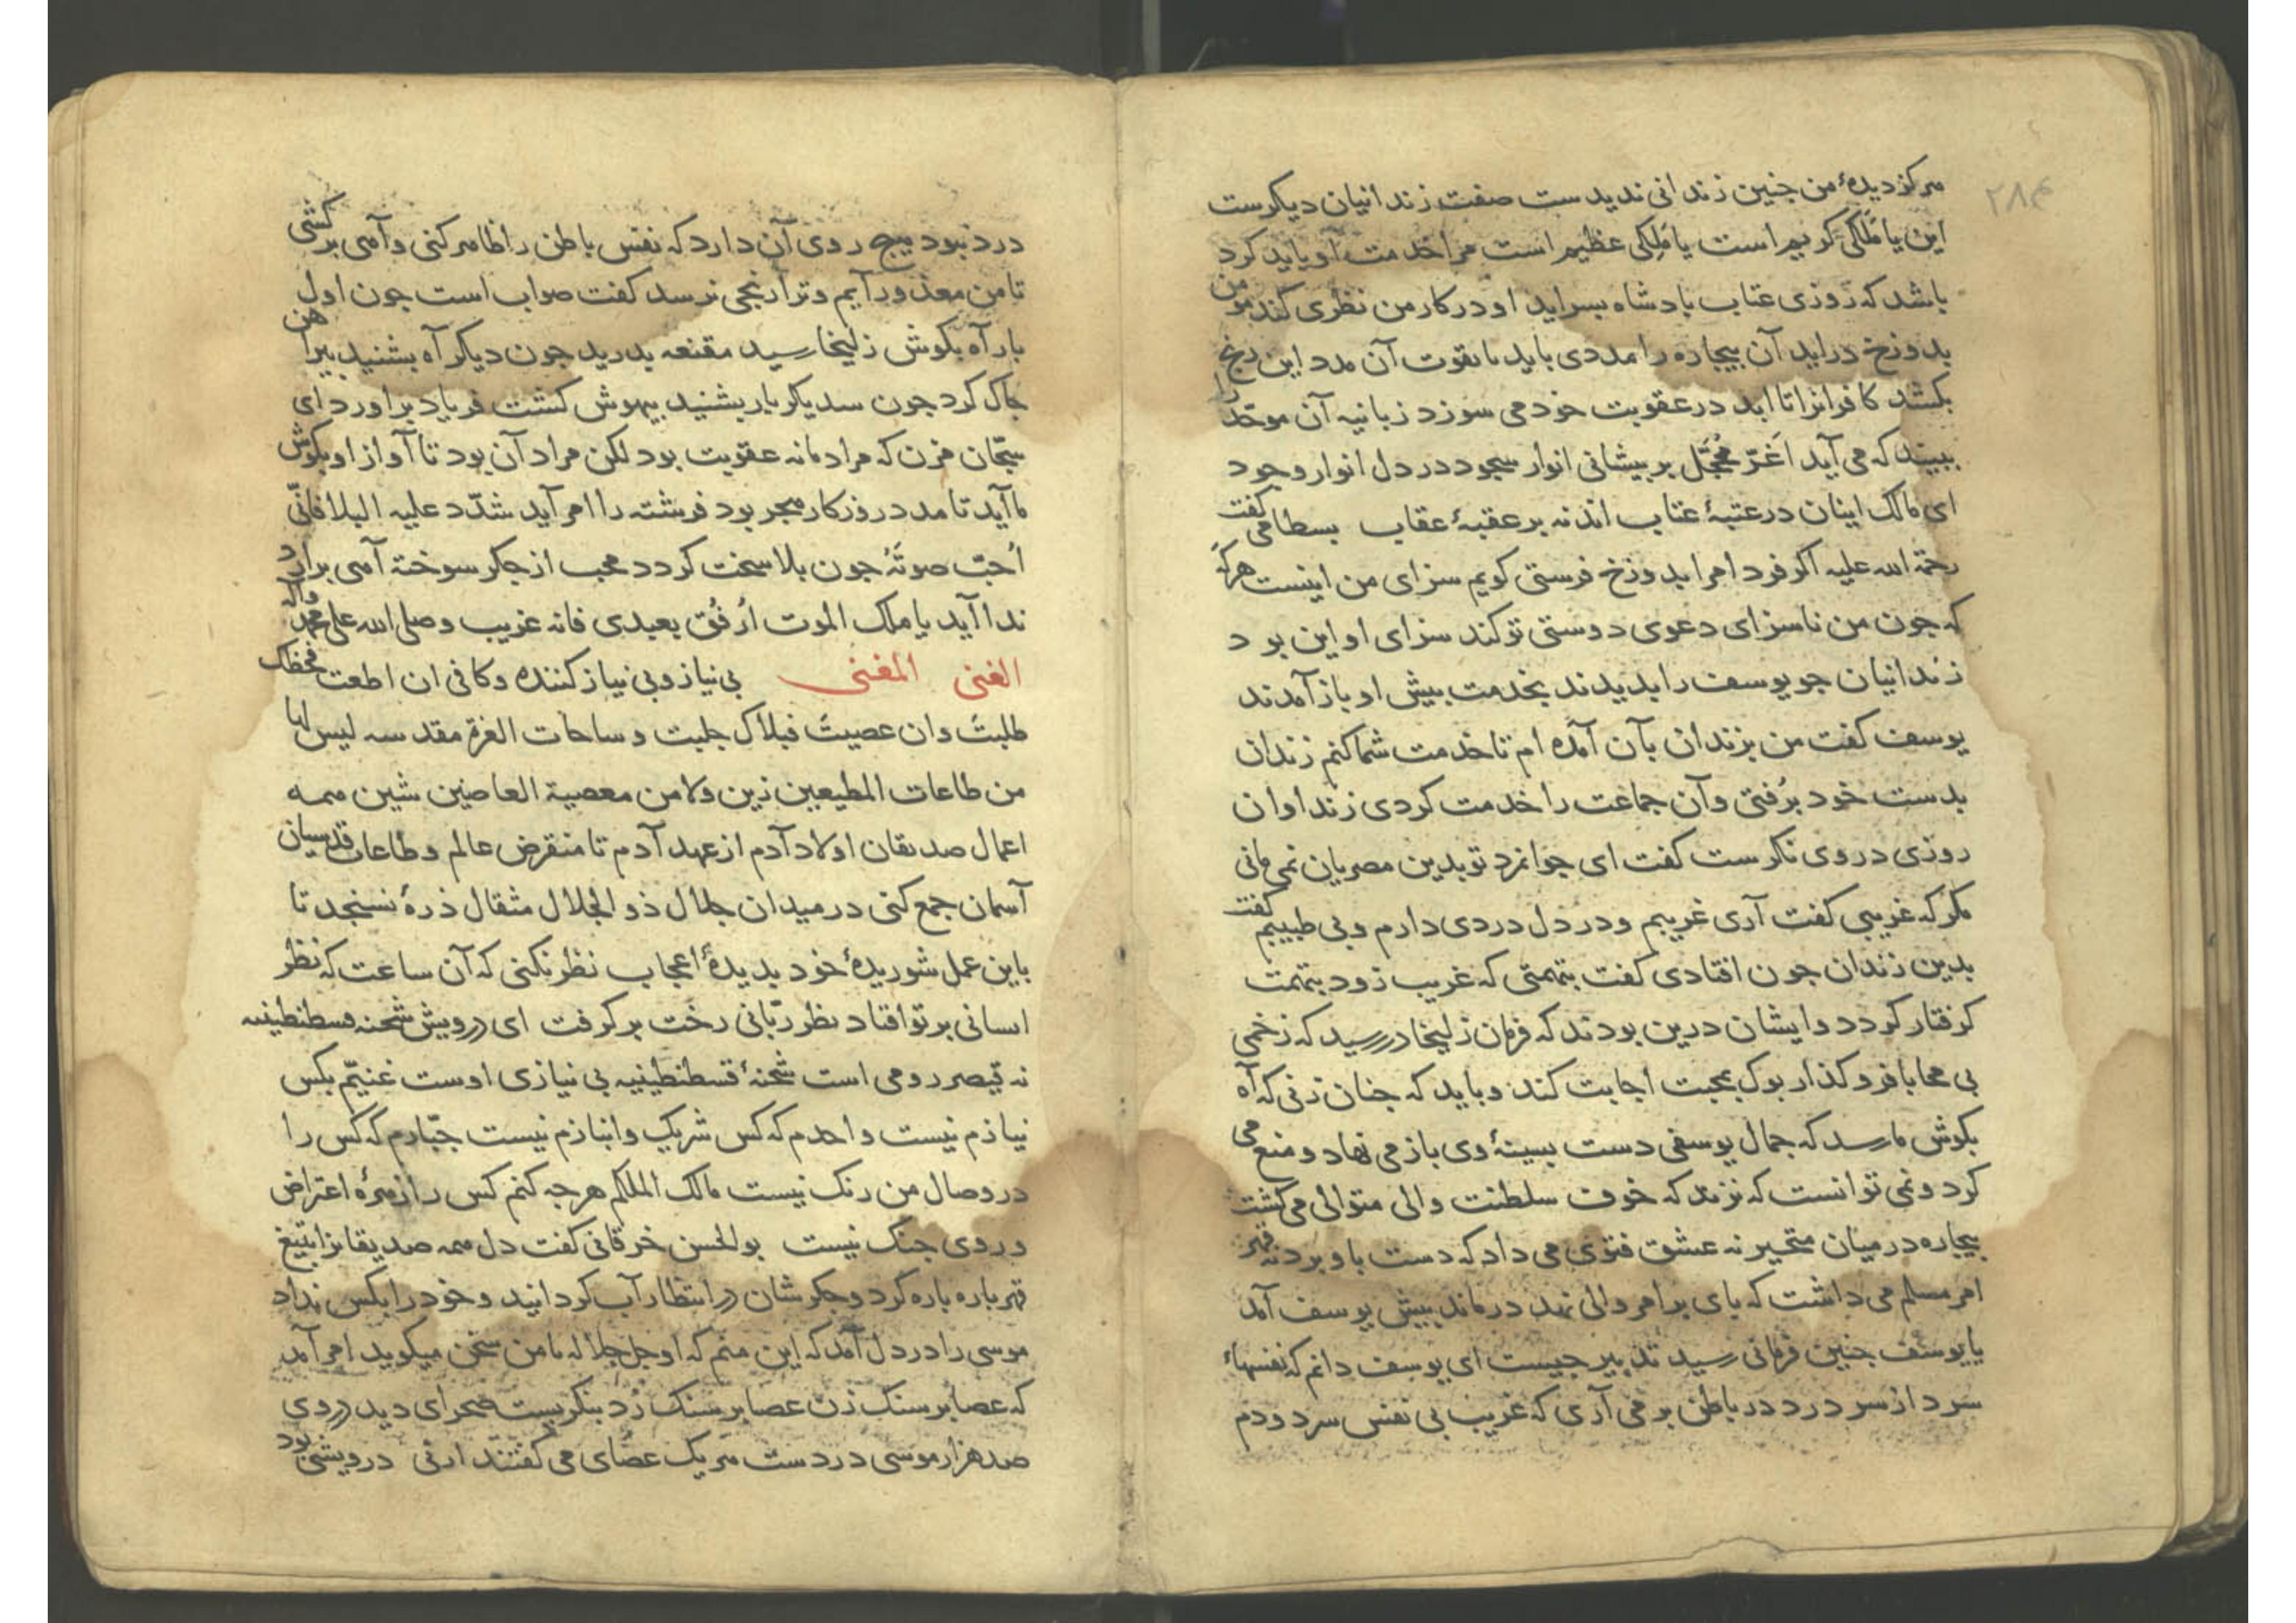 ۲۸۴
هرکز دیدهٔ من جنین زندانی ندیدست صفت زندانیان دیکرست
این یا مَلَکی کریم است یا مَلِکی عظیم است مرا خدمت او باید کرد
باشد که روزی عتاب بادشاه بسراید او در کار من نظری کند مومن
بدوزخ دراید آن بیجاره را مددی باید تا بقوت آن مدد این رنج
بکشد کافرانرا تا ابد در عقوبت خود می سوزد زبانیه آن موحّد را
ببیند که می آید اَغَرّ مُحَجّل بر بیشانی انوار سجود در دل انوار وجود
ای مالک اینان در عتبهٔ عتاب اند نه بر عقبهٔ عقاب بسطامی کفت
رحمة الله علیه اکر فردا مرا بدوزخ فرستی کویم سزای من اینست هرکه
که جون من ناسزای دعوی دوستی تو کند سزای او این بود
زندانیان جو یوسف را بدیدند بخدمت بیش او باز آمدند
یوسف کفت من بزندان بآن آمده ام تا خدمت شما کنم زندان
بدست خود برُفتی وآن جماعت را خدمت کردی زنداوان
روزی در وی نکرست کفت ای جوانمرد تو بدین مصریان نمی مانی
مکر که غریبی کفت آری غریبم ودر دل دردی دارم وبی طبیبم کفت
بدین زندان جون افتادی کفت بتهمتی که غریب زود بتهمت
کرفتار کردد وایشان درین بودند که فرمان زلیخا در رسید که زخمی
بی محابا فرو کذار بوک بمحبت اجابت کند وباید که جنان زنی که آه
بکوش ما رسد که جمال یوسفی دست بسینهٔ وی باز می نهاد ومنع می
کرد ونمی توانست که نزند که خوف سلطنت والی متوالی می کشت
بیجاره در میان متحیر نه عشق فتوی می داد که دست باو برد نه قهر
امر مسلم می داشت که بای بر امر والی نهد درماند بیش یوسف آمد
یا یوسف جنین فرمانی رسید تدبیر جیست ای یوسف دانم که نفسهاء
سرد از سر درد در باطن بر می آری که غریب بی نفس سرد ودم
درد نبود هیج روی آن دارد که نفس باطن را ظاهر کنی وآهی بر کشی
تا من معذور آیم وترا رنجی نرسد کفت صواب است جون اول
بار آه بکوش زلیخا رسید مقنعه بدرید جون دیکر آه بشنید بیراهن
جاک کرد جون سدیکر بار بشنید بیهوش کشت فریاد براورد ای
سجّان مزن که مراد ما نه عقوبت بود لکن مراد آن بود تا آواز او بکوش
ما آید تا مدد روزکار هجر بود فرشته را امر آید شدّد علیه البلا فانّی
اُحبّ صوتَهُ جون بلا سخت کردد محب از جکر سوخته آهی برارد
ندا آید یا ملک الموت اُرفُق بعبدی فانه غریب وصلی الله علی محمد وآله
الغنی المغنی بی نیاز وبی نیاز کننده وکافی ان اطعت فبحظک
طلبتَ وان عصیتَ فبلاک جلبت وساحات العزة مقدسه لیس لها
من طاعات المطیعین زین ولا من معصیة العاصین شین همه
اعمال صدیقان اولاد آدم از عهد آدم تا منقرض عالم وطاعات قدسیان
آسمان جمع کنی در میدان جلال ذو الجلال مثقال ذرهٔ نسنجد تا
باین عمل شوریدهٔ خود بدیدهٔ اعجاب نظر نکنی که آن ساعت که نظر
انسانی بر تو افتاد نظر ربّانی رخت بر کرفت ای درویش شحنه قسطنطینیه
نه قیصر رومی است شحنهٔ قسطنطینیه بی نیازی اوست غنیّم بکس
نیازم نیست واحدم که کس شریک وانبازم نیست جبّارم که کس را
در وصال من رنک نیست مالک الملکم هرجه کنم کس را زهرهٔ اعتراض
وروی جنک نیست بو الحسن خرقانی کفت دل همه صدیقانرا بتیغ
قهر باره باره کرد وجکرشان در انتظار آب کردانید وخود را بکس نداد
موسی را در دل آمد که این منم که او جل جلاله با من سخن میکوید امر آمد
که عصا بر سنک زن عصا بر سنک زد بنکریست صحرای دید در وی
صد هزار موسی در دست هر یک عصای می کفتند ارنی درویشی بود